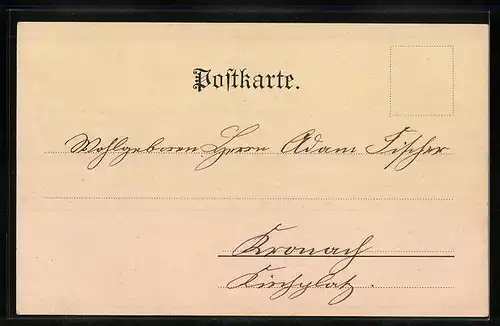 Postkarte.
Wohlgeboren Herrn Adam Fischer
Kronach
Kirchplatz.